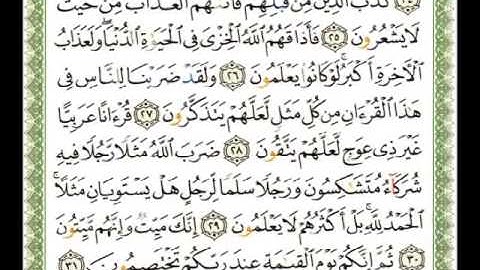 كَذَّبَ الَّذِينَ مِن قَبْلِهِمْ فَأَتَىٰهُمُ الْعَذَابُ مِنْ حَيْثُ
لَا يَشْعُرُونَ ﴿٢٥﴾ فَأَذَاقَهُمُ اللَّهُ الْخِزْيَ فِي الْحَيَوٰةِ الدُّنْيَا ۖ وَلَعَذَابُ
الْآخِرَةِ أَكْبَرُ ۚ لَوْ كَانُوا يَعْلَمُونَ ﴿٢٦﴾ وَلَقَدْ ضَرَبْنَا لِلنَّاسِ فِي
هَٰذَا الْقُرْءَانِ مِن كُلِّ مَثَلٍ لَّعَلَّهُمْ يَتَذَكَّرُونَ ﴿٢٧﴾ قُرْءَانًا عَرَبِيًّا
غَيْرَ ذِي عِوَجٍ لَّعَلَّهُمْ يَتَّقُونَ ﴿٢٨﴾ ضَرَبَ اللَّهُ مَثَلًا رَّجُلًا فِيهِ
شُرَكَاءُ مُتَشَٰكِسُونَ وَرَجُلًا سَلَمًا لِّرَجُلٍ هَلْ يَسْتَوِيَانِ مَثَلًا ۚ
الْحَمْدُ لِلَّهِ ۚ بَلْ أَكْثَرُهُمْ لَا يَعْلَمُونَ ﴿٢٩﴾ إِنَّكَ مَيِّتٌ وَإِنَّهُم مَّيِّتُونَ
﴿٣٠﴾ ثُمَّ إِنَّكُمْ يَوْمَ الْقِيَٰمَةِ عِندَ رَبِّكُمْ تَخْتَصِمُونَ ﴿٣١﴾